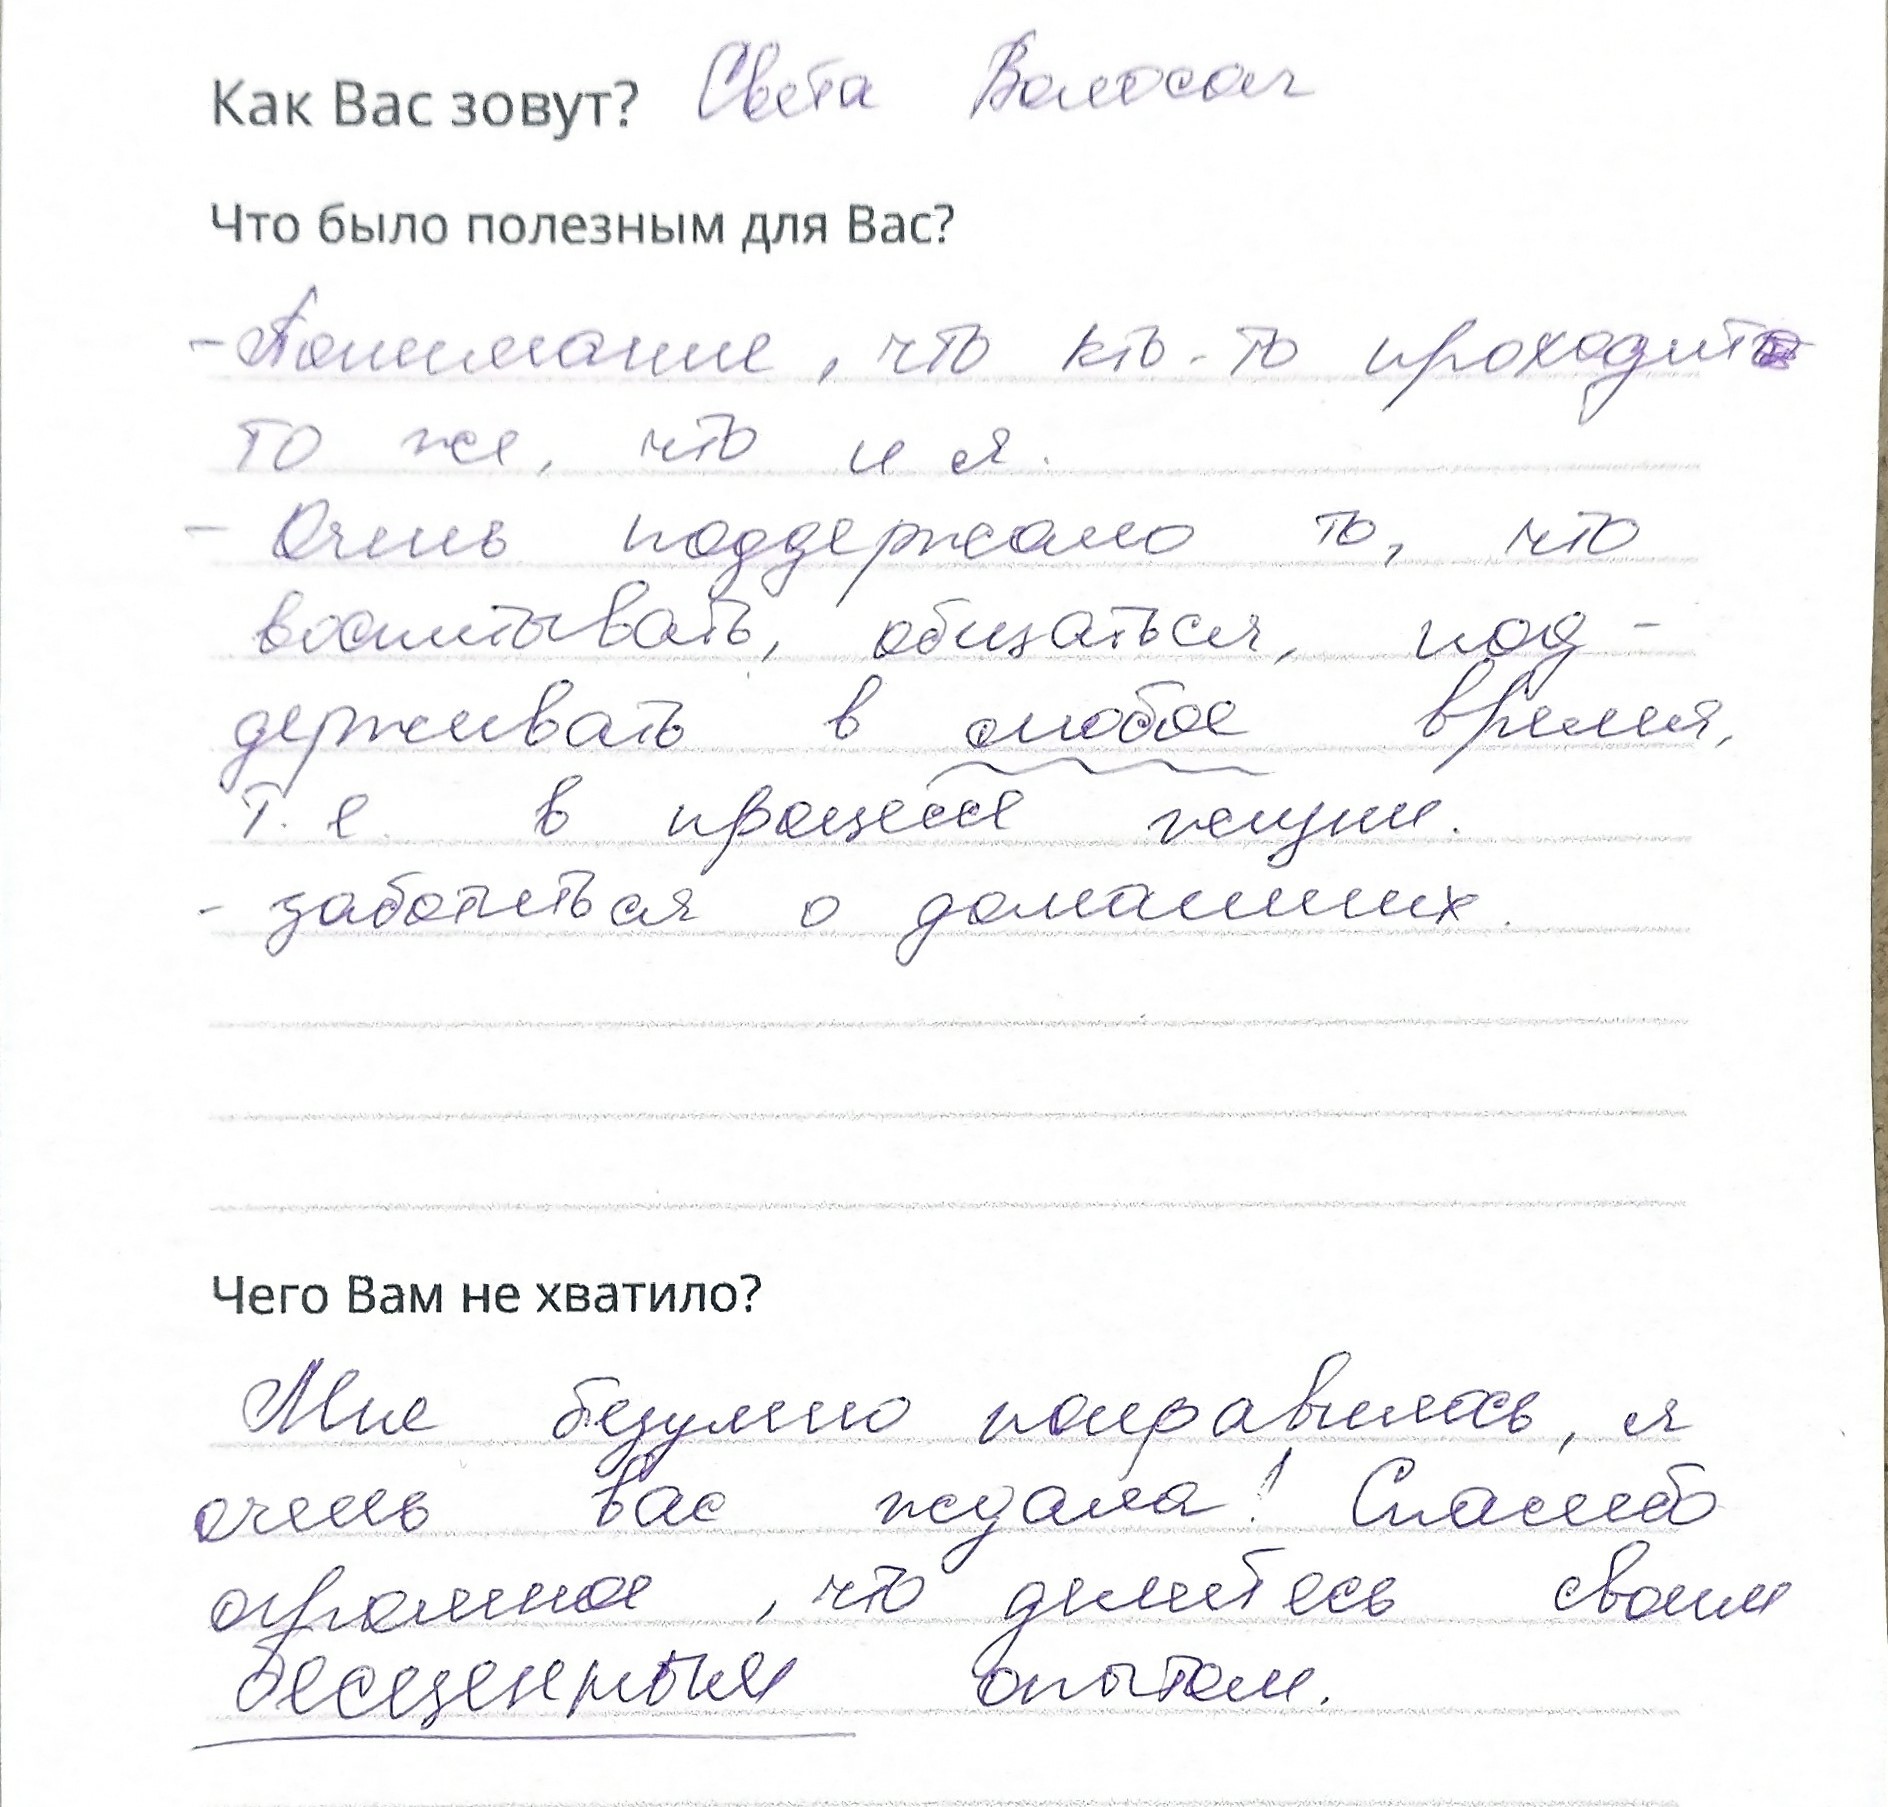 Как Вас зовут? Света Волосач
Что было полезным для Вас?
- Понимание, что кто-то проходит
то же, что и я.
- Очень поддержало то, что
воспитывать, общаться, под-
держивать в любое время,
т.е. в процессе жизни.
- заботиться о домашних.
Чего Вам не хватило?
Мне безумно понравилось, я
очень вас ждала! Спасибо
огромное, что делитесь своим
бесценным опытом.